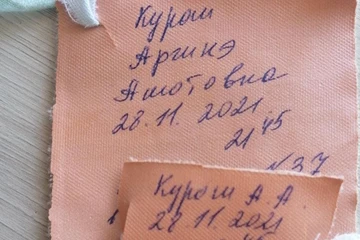 Курош
Аргинэ
Ашотовна
28.11.2021.
21 45
N 37
Курош А.А.
28 11.2021